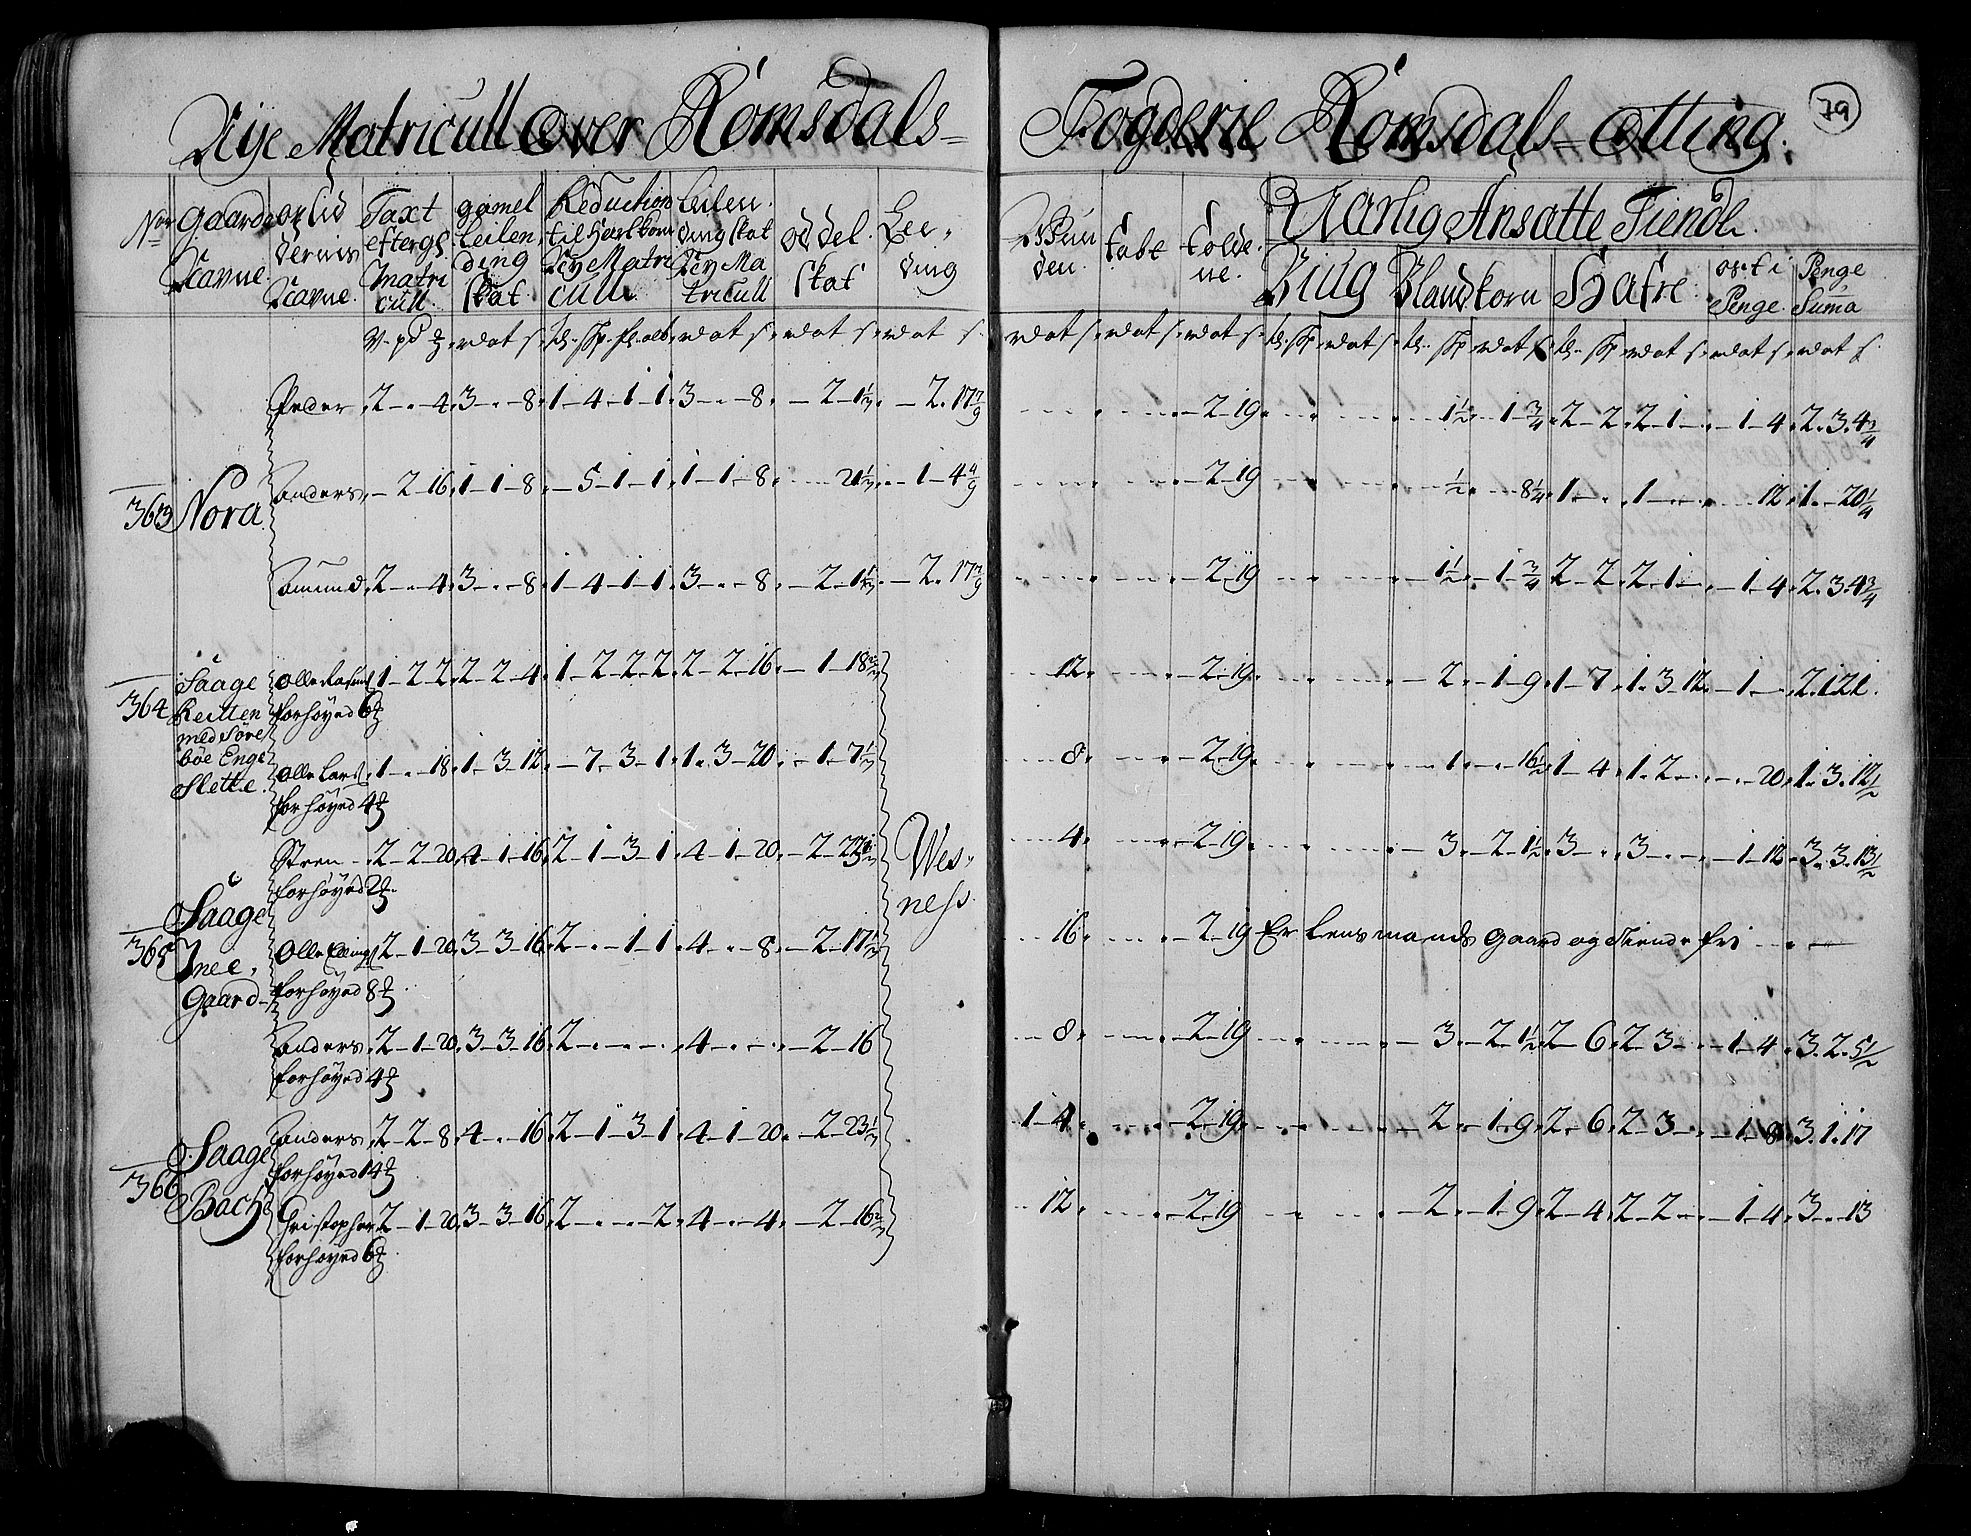 Nÿe Matricull over Romsdals-
Fogderie Romsdals- otting.
79
Nrr
Gaarde Navne
opsid dernis Navne
Taxt efter gl Matri cull
gamel Leilen ding skat
Reduction til Hartkorn Nÿ Matri cull
Leilen ding skat Nÿ Ma tricull
oddel skat
Lee, ding
tabt
Tolde ne.
Aarlig Ansatte Tiende
Biug
Blandkorn
Hafre
ost i Penge
Penge Suma
Peder 2 - - 4 3 - - 8 1 - 4 - 1 - 1 3 - - 8 - 2 - 1 1/3 - 2 - 17 7/9 - 2 - 19 1 1/2 - 1 3/4 2 - 2 2 - 1 - - 1 - 4 2 - 3 - 4 3/4
363 Nora
Anders - 2 - 16 1 - 1 - 8 - 5 - 1 - 1 1 - 1 - 8 21 1/3 - 1 - 4 4/9 - 2 - 19 1/2 8 1/4 1 - - 1 - - 12 1 - 20 1/4
Amund 2 - - 4 3 - - 8 1 - 4 - 1 - 1 3 - - 8 - 2 - 1 1/3 - 2 - 17 7/9 - 2 - 19 1 1/2 - 1 3/4 2 - 2 2 - 1 - - 1 - 4 2 - 3 - 4 3/4
364 Saage Reitten med Sørebøe Enge Slette
Olle Rasmus 1 - 2 - 2 2 - 2 - 4 1 - 2 - 2 - 2 2 - 2 - 16 - 1 - 18 2/3 12 - 2 - 19 - 2 - 1 - 9 1 - 7 1 - 3 - 12 - 1 - 2 - 1 21
forhøyed 6
Olle Lars 1 - - 18 1 - 3 - 12 - 7 - 3 - 1 1 - 3 - 20 - 1 - 7 1/3 8 - 2 - 19 1 - - 16 1/2 1 - 4 1 - 2 - - 20 1 - 3 - 12 1/2
forhøyed 4
Steen 2 - 2 - 20 4 - 1 - 16 2 - 1 - 3 - 1 4 - 1 - 20 - 2 - 23 1/3 4 - 2 - 19 3 - 2 - 1 1/2 3 - - 3 - - - 1 - 12 3 - 3 - 13 1/2
forhøyed 2
Wes,
ness.
365 Saage Jnee, Gaard
Olle Ellings 2 - 1 - 20 3 - 3 - 16 2 - - 1 - 1 4 - - 8 - 2 - 17 1/3 16 - 2 - 19 Er Lensmands Gaard og Tiende fri
forhøyed 8
Anders 2 - 1 - 20 3 - 3 - 16 2 - - - 4 - - - 2 - 16 8 - 2 - 19 - 3 - 2 - 1 1/2 2 - 6 2 - 3 - - 1 - 4 3 - 2 - 5 1/2
forhøyed 4
366 Saage Bach
Anders 2 - 2 - 8 4 - - 16 2 - 1 - 3 - 1 4 - 1 - 20 - 2 - 23 1/3 1 - 4 - 2 - 19 - 2 - 1 - 9 2 - 6 2 - 3 - - 1 - 8 3 - 1 - 17
forhøyed 14
Christopher 2 - 1 - 20 3 - 3 - 16 2 - - - 2 4 - - 4 - 2 - 16 2/3 12 - 2 - 19 - 2 - 1 - 9 2 - 4 2 - 2 - - 1 - 4 3 - - 13
forhøyed 6